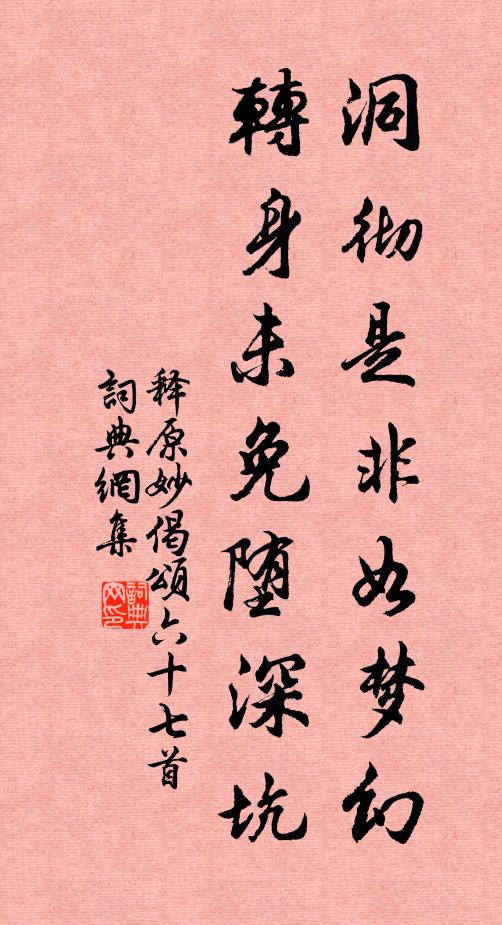 洞彻是非如梦幻
轉身未免堕深坑
释原妙偈頌六十七首
詞典網集
詞典網印